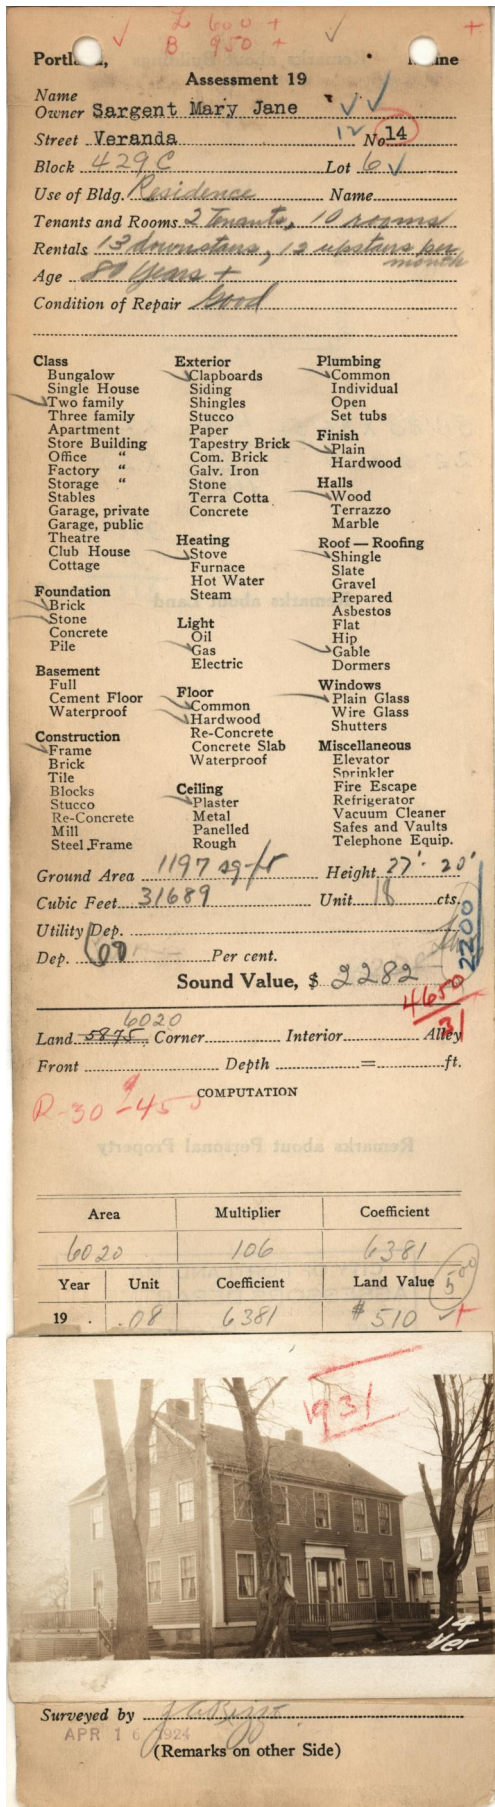 L 600 +
B 950 +
Portland, Maine
Assessment 19
Name
Owner Sargent Mary Jane
Street Veranda 12 No 14
Block 429C Lot 6
Use of Bldg. Residence Name
Tenants and Rooms 2 tenants, 10 rooms
Rentals 13 downstairs, 12 upstairs per month
Age 80 years +
Condition of Repair Good
Class
Bungalow
Single House
Two family
Three family
Apartment
Store Building
Office "
Factory "
Storage "
Stables
Garage, private
Garage, public
Theatre
Club House
Cottage
Foundation
Brick
Stone
Concrete
Pile
Basement
Full
Cement Floor
Waterproof
Construction
Frame
Brick
Tile
Blocks
Stucco
Re-Concrete
Mill
Steel Frame
Exterior
Clapboards
Siding
Shingles
Stucco
Paper
Tapestry Brick
Com. Brick
Galv. Iron
Stone
Terra Cotta
Concrete
Heating
Stove
Furnace
Hot Water
Steam
Light
Oil
Gas
Electric
Floor
Common
Hardwood
Re-Concrete
Concrete Slab
Waterproof
Ceiling
Plaster
Metal
Panelled
Rough
Plumbing
Common
Individual
Open
Set tubs
Finish
Plain
Hardwood
Halls
Wood
Terrazzo
Marble
Roof — Roofing
Shingle
Slate
Gravel
Prepared
Asbestos
Flat
Hip
Gable
Dormers
Windows
Plain Glass
Wire Glass
Shutters
Miscellaneous
Elevator
Sprinkler
Fire Escape
Refrigerator
Vacuum Cleaner
Safes and Vaults
Telephone Equip.
Ground Area 1197 sq-ft Height 27'. 20'
Cubic Feet 31689 Unit 18 cts.
Utility Dep.
Dep. 60 Per cent.
2200
Sound Value, $ 2282
4650
31
6020
Land 5875 Corner Interior Alley
Front Depth = ft.
COMPUTATION
R-30
Area Multiplier Coefficient
6020 106 6381
Year Unit Coefficient Land Value 500
19 . .08 6381 $510
1931
14
Ver
Surveyed by
APR 16 1924
(Remarks on other Side)